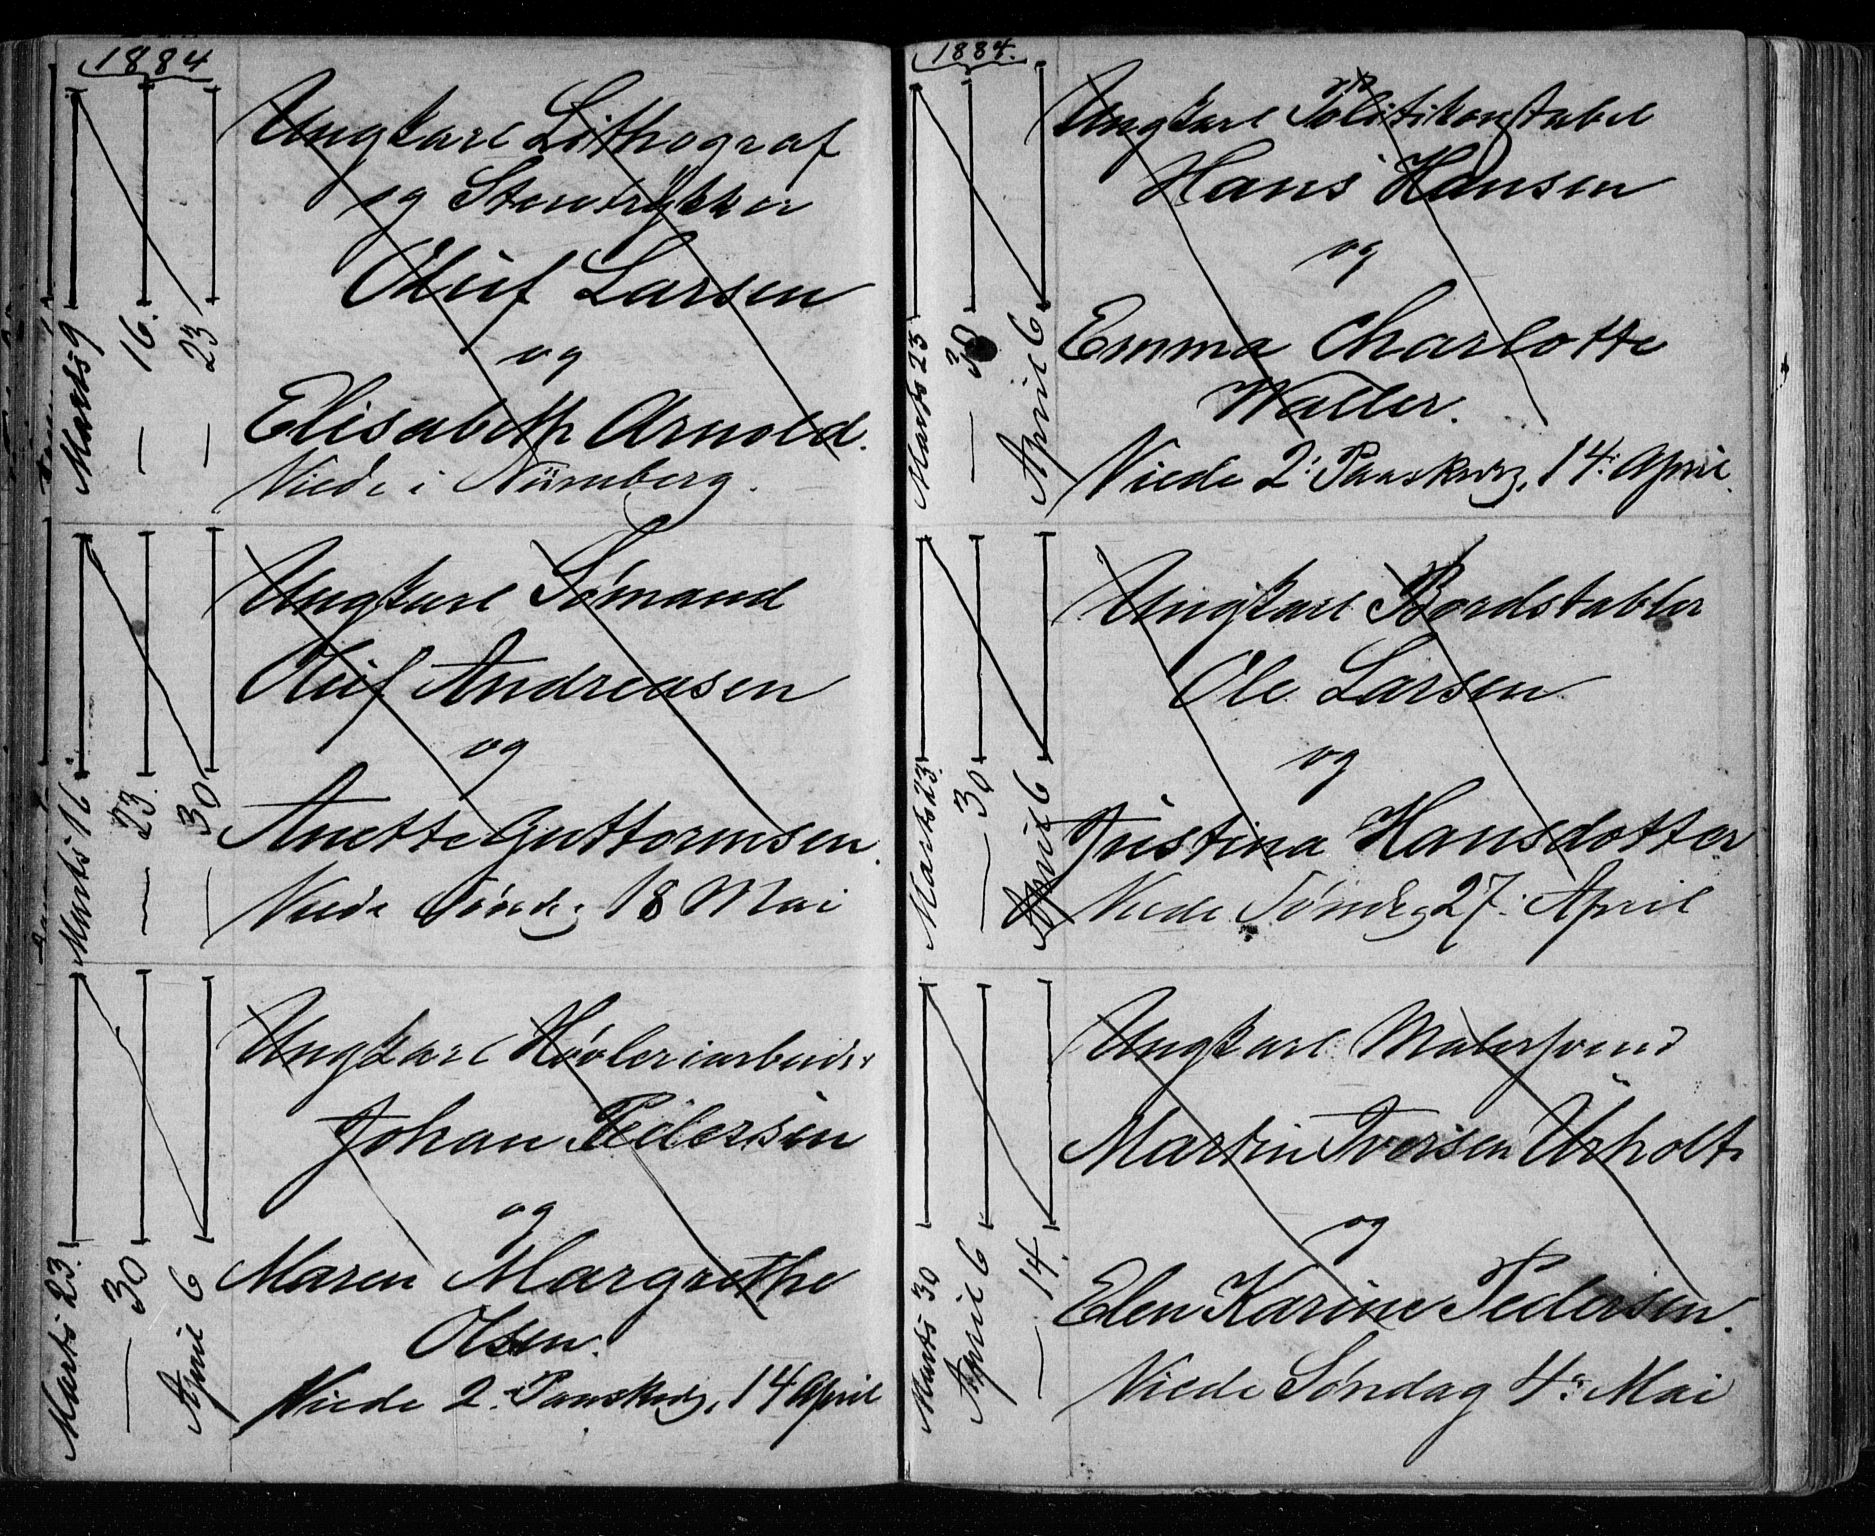 1884
Marts 9
— 16.
— 23
Ungkarl Lithograf
og Stentrykker
Oluf Larsen
og
Elisabeth Arnold.
Viede i Nürnberg.
Marts 16
— 23
— 30
Ungkarl Sømand
Oluf Andreasen
og
Anette Guttormsen.
Viede Søndg 18 Mai
Marts 23.
— 30
April 6
Ungkarl Høvleriarbeider
Johan Pedersen
og
Maren Margrethe
Olsen.
Viede 2. Paaskedg, 14 April
1884.
Marts 23
— 30
April 6
Ungkarl Politikonstabel
Hans Hansen
og
Emma Charlotte
Waller.
Viede 2: Paaskedg, 14: April.
Marts 23
— 30
April 6
Ungkarl Bordstabler
Ole Larsen
og
Justina Hansdotter
Viede Søndg 27: April
Marts 30
April 6
— 14.
Ungkarl Malersvend
Martin Iversen Urholt
og
Elen Karine Pedersen.
Viede Søndag 4: Mai